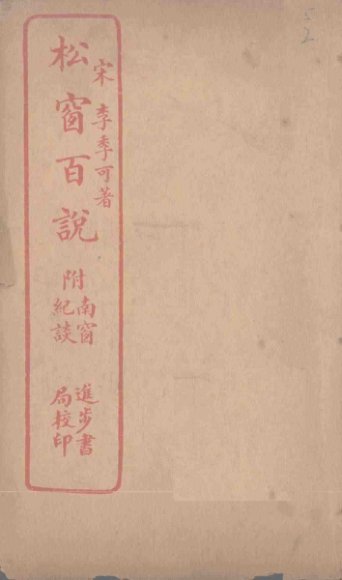 宋 李季可著
松窗百說
附南窗
紀談
進步書
局校印